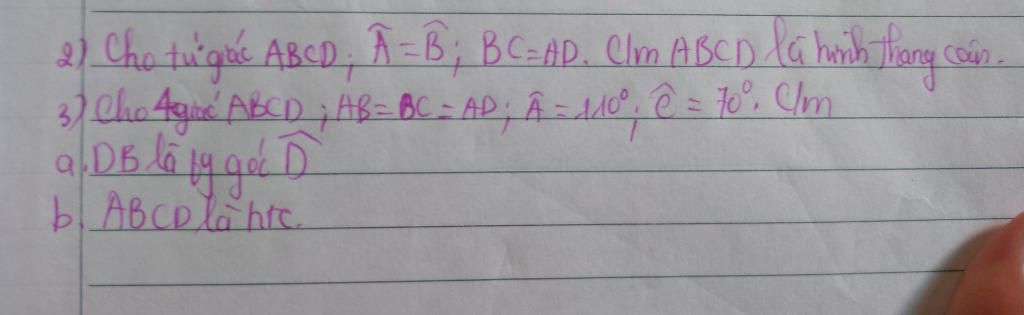 2) Cho tứ giác ABCD; Â = B̂; BC = AD. C/m ABCD là hình thang cân.
3) Cho 4giác ABCD; AB = BC = AD; Â = 110°; Ĉ = 70°. C/m
a. DB là pg góc D̂
b. ABCD là htc.